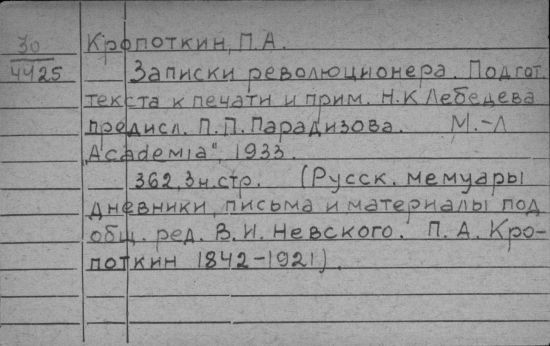 30
4425
Кропоткин, П.А.
Записки революционера. Подгот.
текста к печати и прим. Н.К Лебедева
предисл. П.П.Парадизова. М.-Л
„Academia", 1933.
362,3н.стр. (Русск. мемуары
дневники, письма и материалы под
общ. ред. В.И.Невского. П.А. Кро-
поткин 1842-1921).